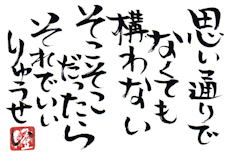 思い通りで
なくても
構わない
そこそこ
だったら
それでいい
りゅうせ